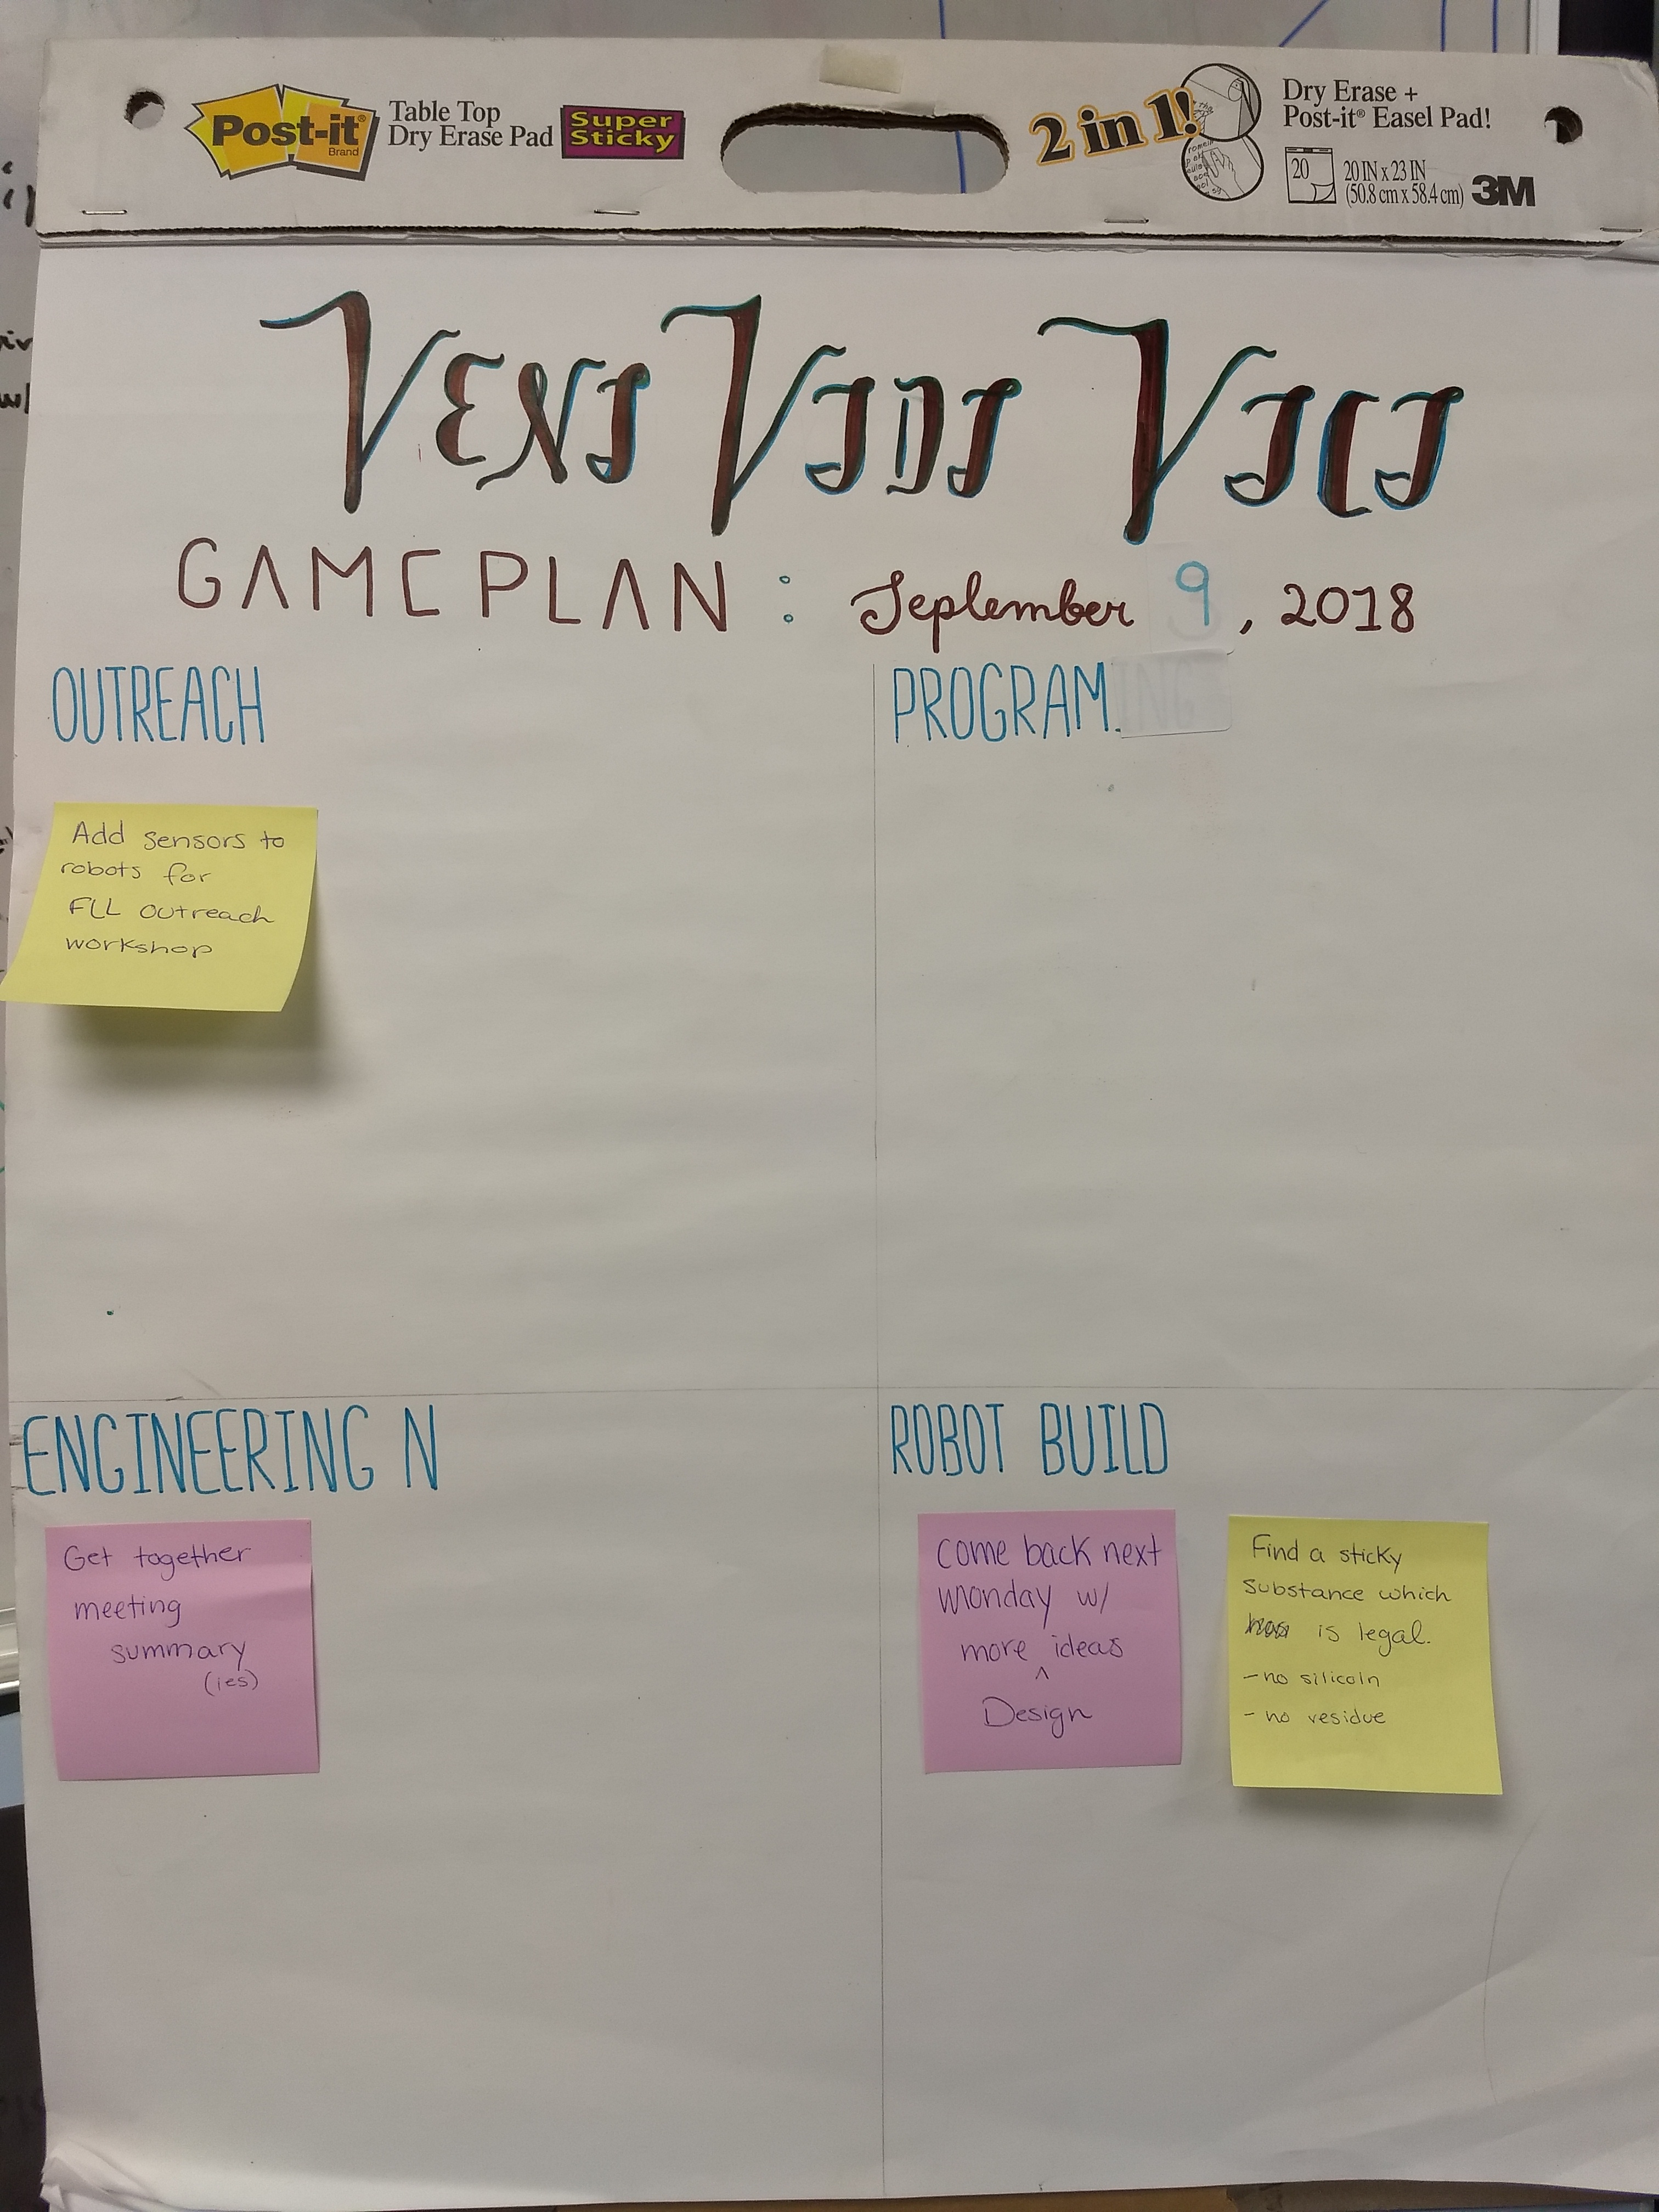 Post-it®
Brand
Table Top
Dry Erase Pad
Super
Sticky
2 in 1!
Dry Erase +
Post-it® Easel Pad!
20
20 IN x 23 IN
(50.8 cm x 58.4 cm)
3M
VENI VIDI VICI
GAMEPLAN : September 9, 2018
OUTREACH
Add sensors to
robots for
FLL outreach
workshop
PROGRAM.ING
ENGINEERING N
Get together
meeting
summary
(ies)
ROBOT BUILD
come back next
Monday w/
more ^ ideas
Design
Find a sticky
substance which
is legal.
- no silicoln
- no residue